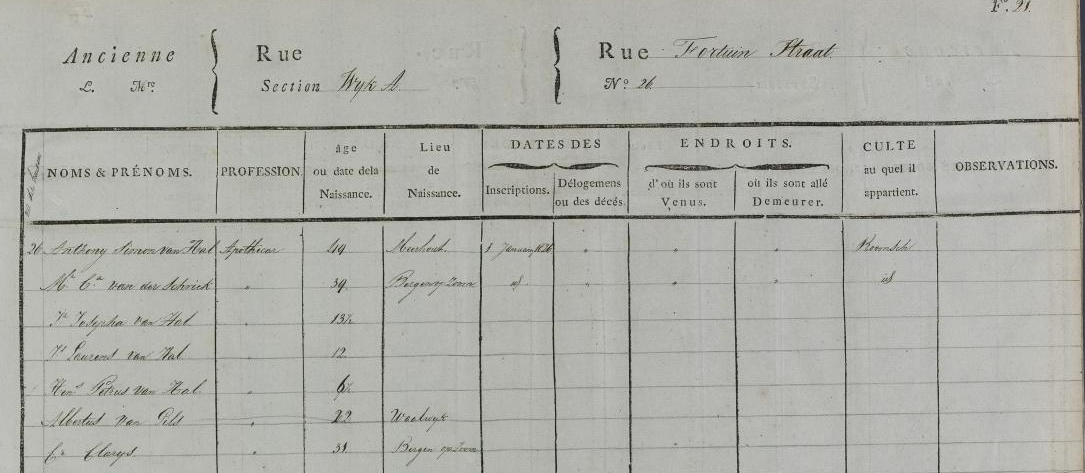 F.º 21.
Ancienne Rue Rue Fortuin Straat
L. Mro. Section Wyk A. Nº 26.
NOMS & PRÉNOMS. PROFESSION. âge ou date dela Naissance. Lieu de Naissance. DATES DES ENDROITS. CULTE au quel il appartient. OBSERVATIONS.
Inscriptions. Délogemens ou des décés. d'où ils sont Venus. où ils sont allé Demeurer.
26 Anthony Simon van Hal Apothicar 49 1 January 1826 " " " Roomsch
Mª Cª van der Schrick " 39 Bergen op Zoom id " " " id
Jª Josepha van Hal 13½
Js Laurens van Hal 12
Hens Petrus van Hal " 6½
Albertus van Pels " 22 Waalwyk
Cª Clarys " 31 Bergen op Zoom "